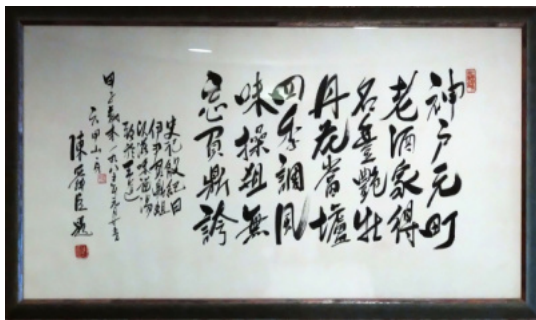 神戸元町
老酒家得
名豊艶牡
丹花當壚
四季調風
味操俎無
忘負鼎誇
史記殷紀曰
伊尹負鼎俎
以滋味説湯
致于王道
六甲山房
陳舜臣題